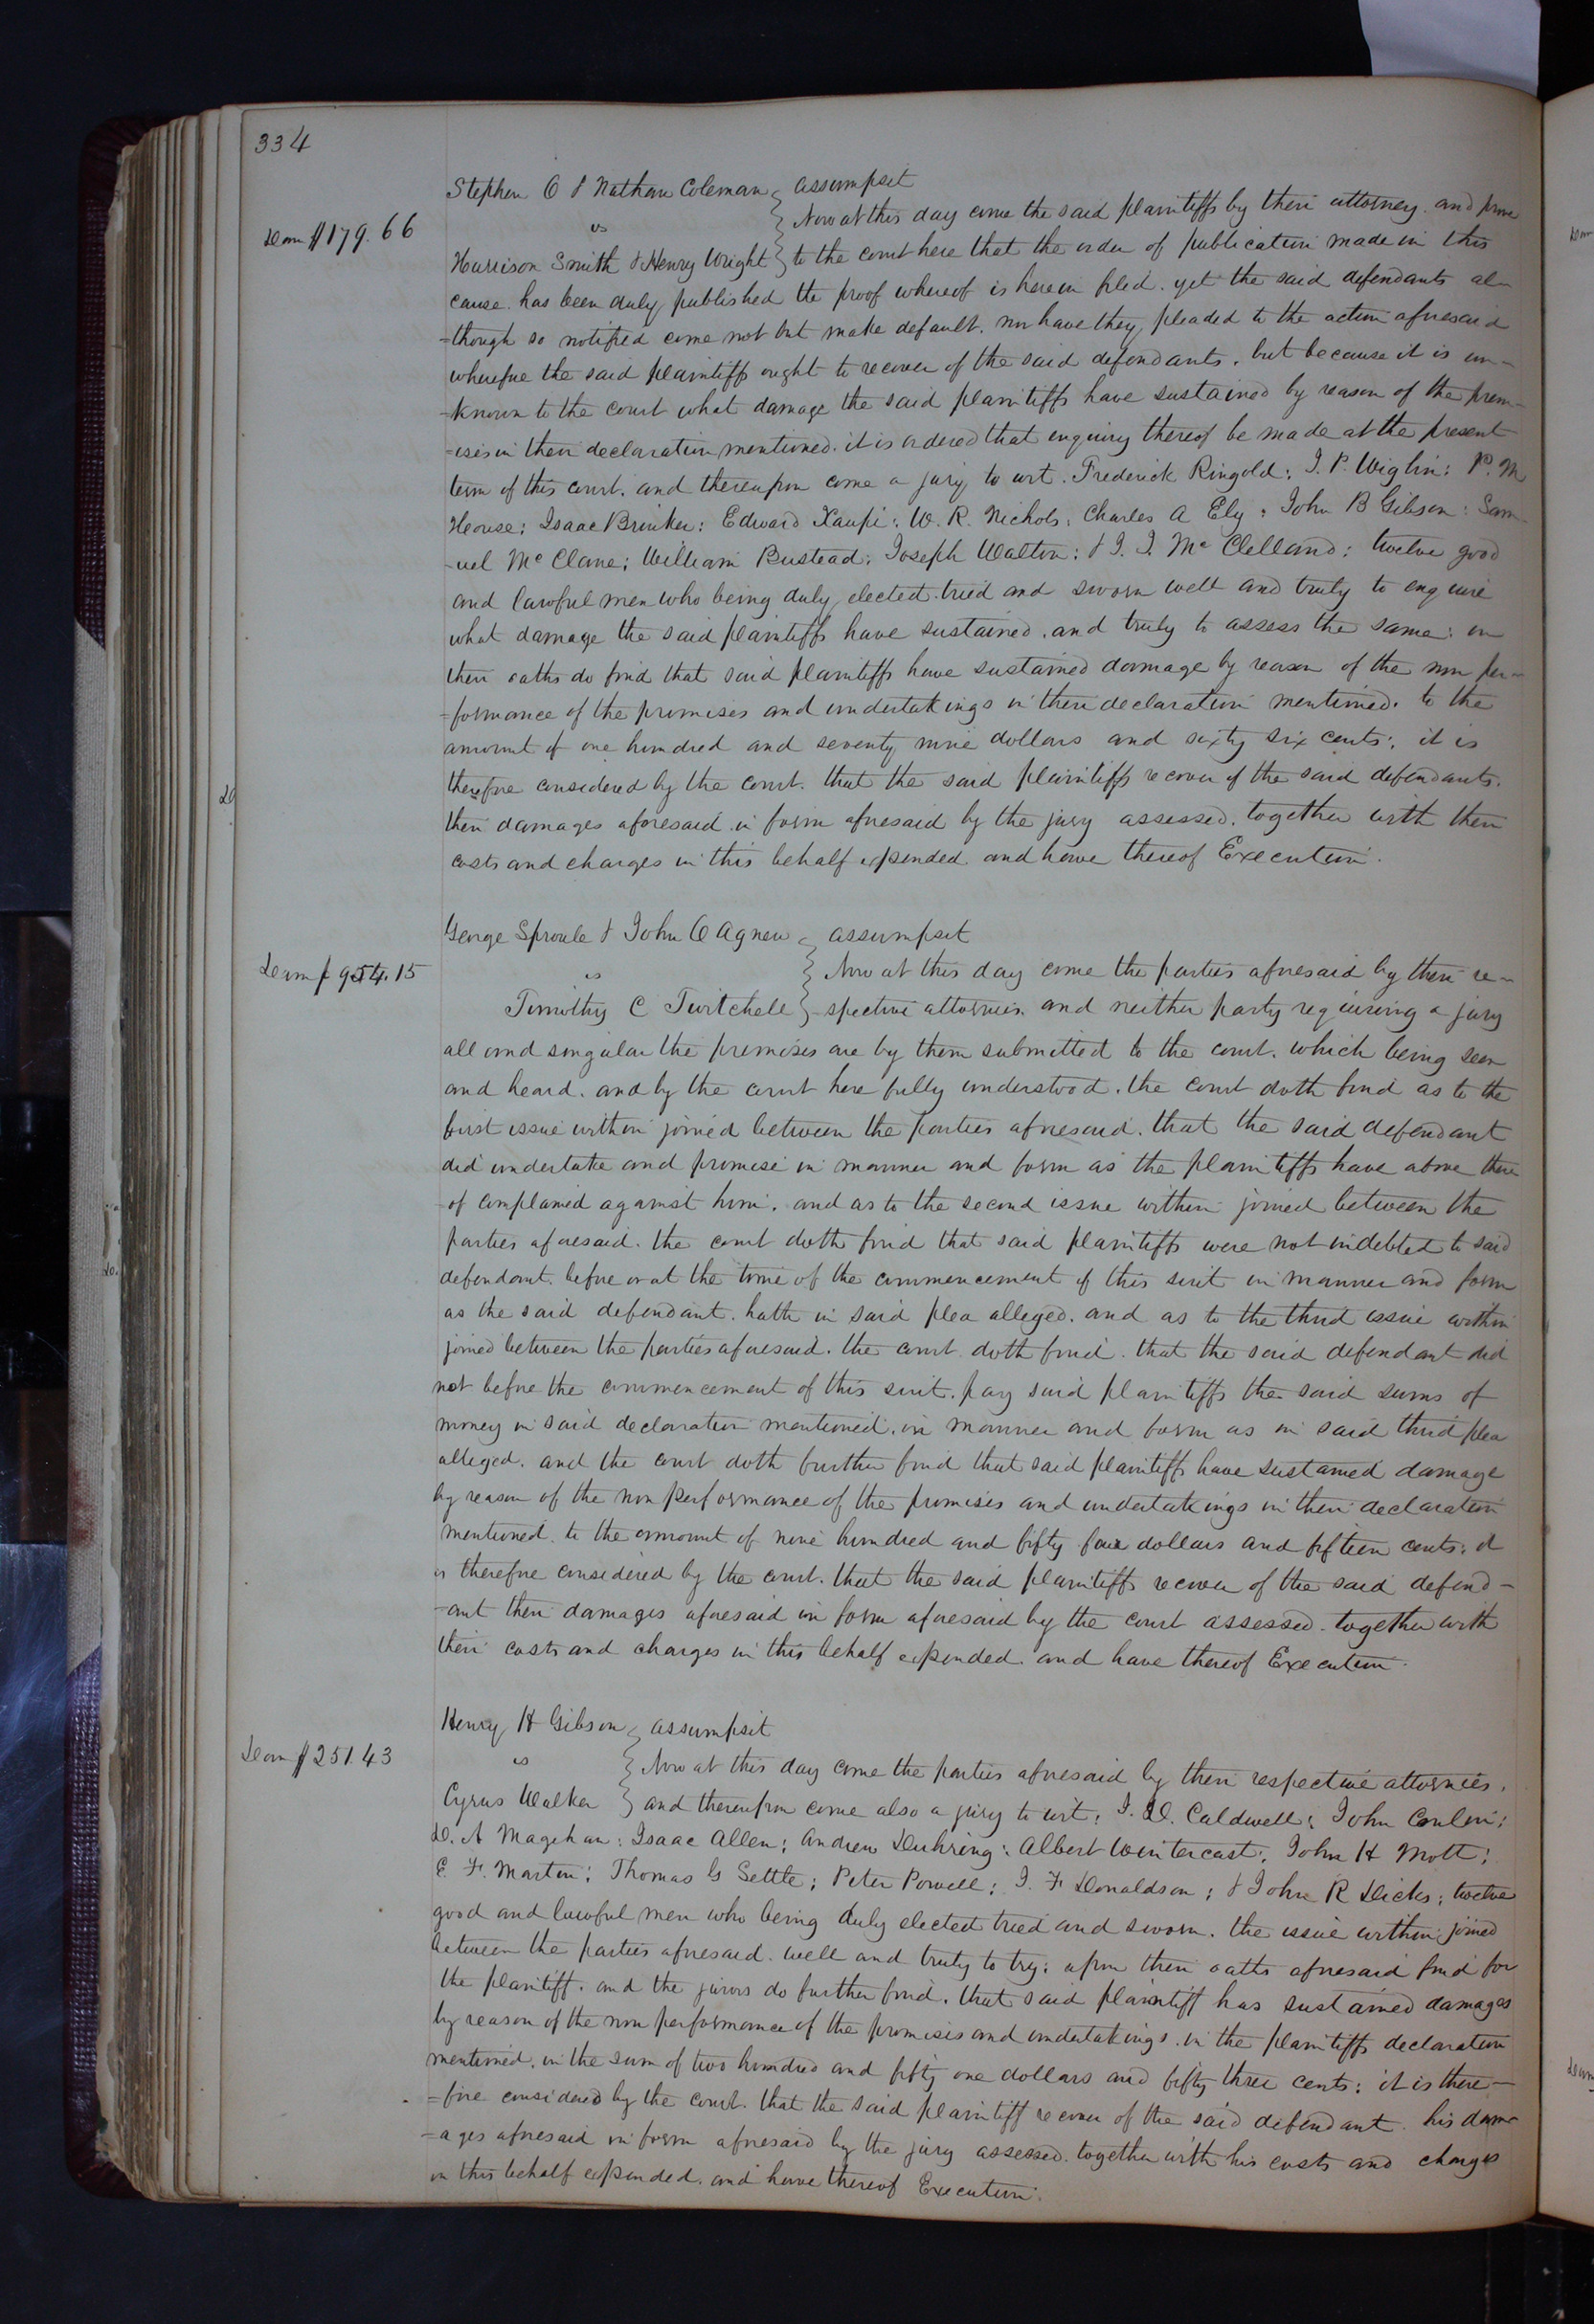 334
Stephen O & Nathan Coleman } assumpsit
Dam $179.66
vs } Now at this day come the said plaintiffs by their attorney. and prove
Harrison Smith & Henry Wright } to the court here that the order of publication made in this
cause. has been duly published the proof whereof is herein filed. yet the said defendants al-
=though so notified come not but make default. nor have they pleaded to the action aforesaid
wherefore the said plaintiffs ought to recover of the said defendants. but because it is un-
=known to the court what damage the said plaintiffs have sustained by reason of the prem-
=ises in their declaration mentioned. it is ordered that enquiry thereof be made at the present
term of this court. and thereupon come a jury to wit. Frederick Ringold: J. P. Wiglin: P. M
House: Isaac Brinker: Edward Kaupi: W. R. Nichols: Charles A Ely: John B Gibson: Sam-
-uel Mc Clane: William Bustead: Joseph Walton: & J. J. Mc Clelland: twelve good
and lawful men who being duly elected tried and sworn well and truly to enquire
what damage the said plaintiffs have sustained. and truly to assess the same: on
their oaths do find that said plaintiffs have sustained damage by reason of the non per-
=formance of the promises and undertakings in their declaration mentioned. to the
amount of one hundred and seventy nine dollars and sixty six cents: it is
therefore considered by the court. that the said plaintiffs recover of the said defendants.
their damages aforesaid in form aforesaid by the jury assessed. together with their
costs and charges in this behalf expended and have thereof Execution.
George Sproule & John O Agnew } assumpsit
Dam $954.15
vs } Now at this day come the parties aforesaid by their re-
Timothy C Twitchell } -spective attornies. and neither party requiring a jury
all and singular the premises are by them submitted to the court. which being seen
and heard. and by the court here fully understood. the court doth find as to the
first issue within joined between the parties aforesaid. that the said defendant
did undertake and promise in manner and form as the plaintiffs have above there
-of complained against him. and as to the second issue within joined between the
parties aforesaid. the court doth find that said plaintiffs were not indebted to said
defendant. before or at the time of the commencement of this suit in manner and form
as the said defendant. hath in said plea alleged. and as to the third issue within
joined between the parties aforesaid. the court doth find. that the said defendant did
not before the commencement of this suit. pay said plaintiffs the said sums of
money in said declaration mentioned. in manner and form as in said third plea
alleged. and the court doth further find that said plaintiffs have sustained damage
by reason of the non performance of the promises and undertakings in their declaration
mentioned. to the amount of nine hundred and fifty four dollars and fifteen cents. it
is therefore considered by the court. that the said plaintiffs recover of the said defend-
-ant their damages aforesaid in form aforesaid by the court assessed. together with
their costs and charges in this behalf expended. and have thereof Execution.
Henry H Gibson } assumpsit
Dam $251.43
vs } Now at this day come the parties aforesaid by their respective attornies.
Cyrus Walker } and thereupon come also a jury to wit: J. D. Caldwell: John Conlin:
D. A Magehan: Isaac Allen: Andrew Duhring: Albert Wintercast: John H Mott:
E F. Martin: Thomas G Settle: Peter Powell: J. F Donaldson: & John R Dicks: twelve
good and lawful men who being duly elected tried and sworn. the issue within joined
between the parties aforesaid. well and truly to try: upon their oaths aforesaid find for
the plaintiff. and the jurors do further find. that said plaintiff has sustained damages
by reason of the non performance of the promises and undertakings. in the plaintiffs declaration
mentioned. in the sum of two hundred and fifty one dollars and fifty three cents: it is there-
=fore considered by the court. that the said plaintiff recover of the said defendant. his dam-
=ages aforesaid in form aforesaid by the jury assessed. together with his costs and charges
in this behalf expended. and have thereof Execution.